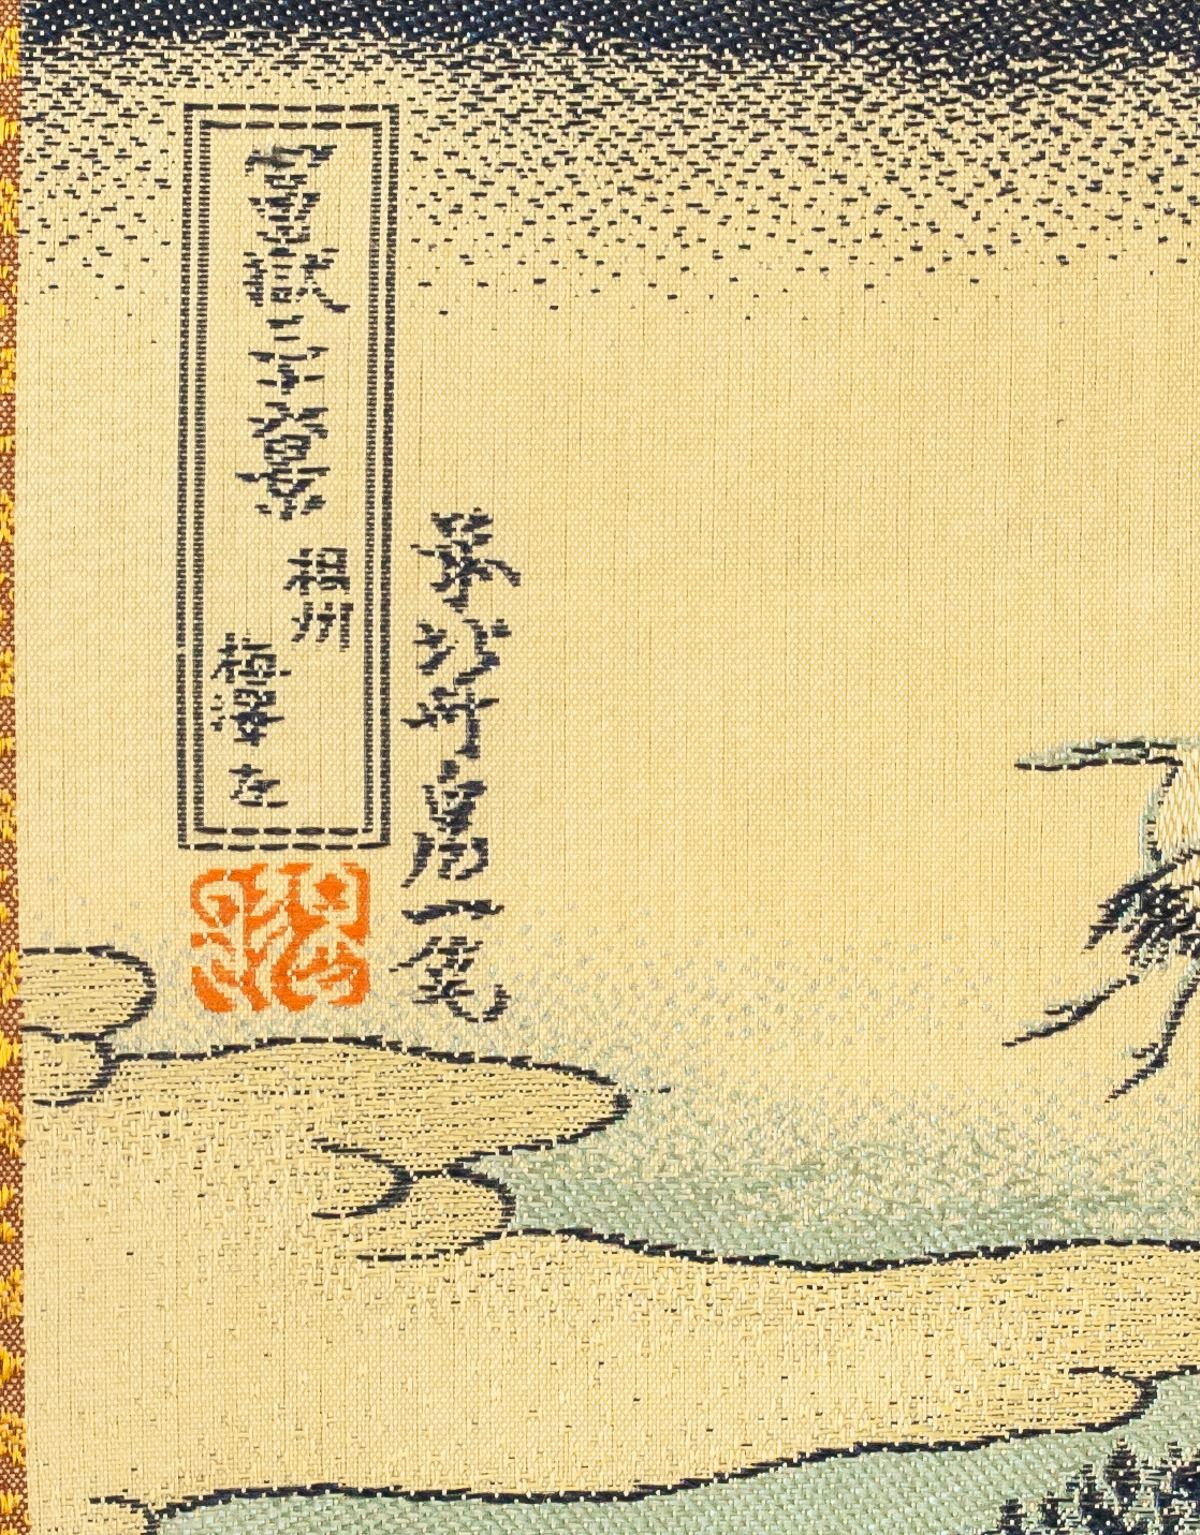 冨嶽三十六景
相州
梅澤左
前北斎為一筆